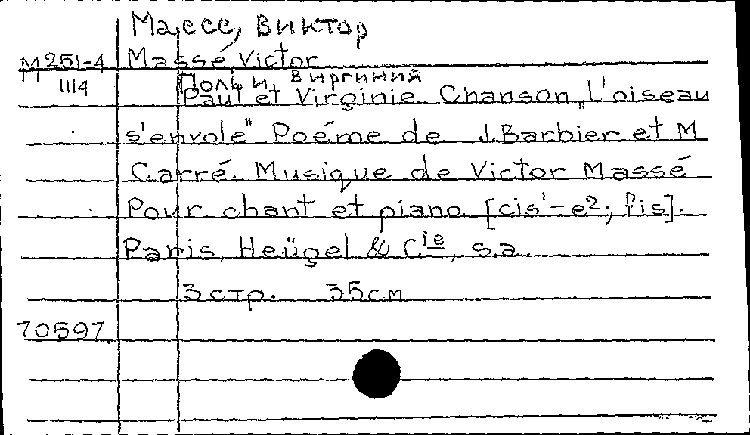 Массе, Виктор
М 251-4 Massé Victor
1114 Поль и Виргиния
Paul et Virginie. Chanson „L'oiseau
s'envole" Poéme de J. Barbier et M
Carré. Musique de Victor Massé
Pour chant et piano. [cis¹-e²; fis].
Paris, Heügel & Cie, s.a.
3 стр. 35 см
70597